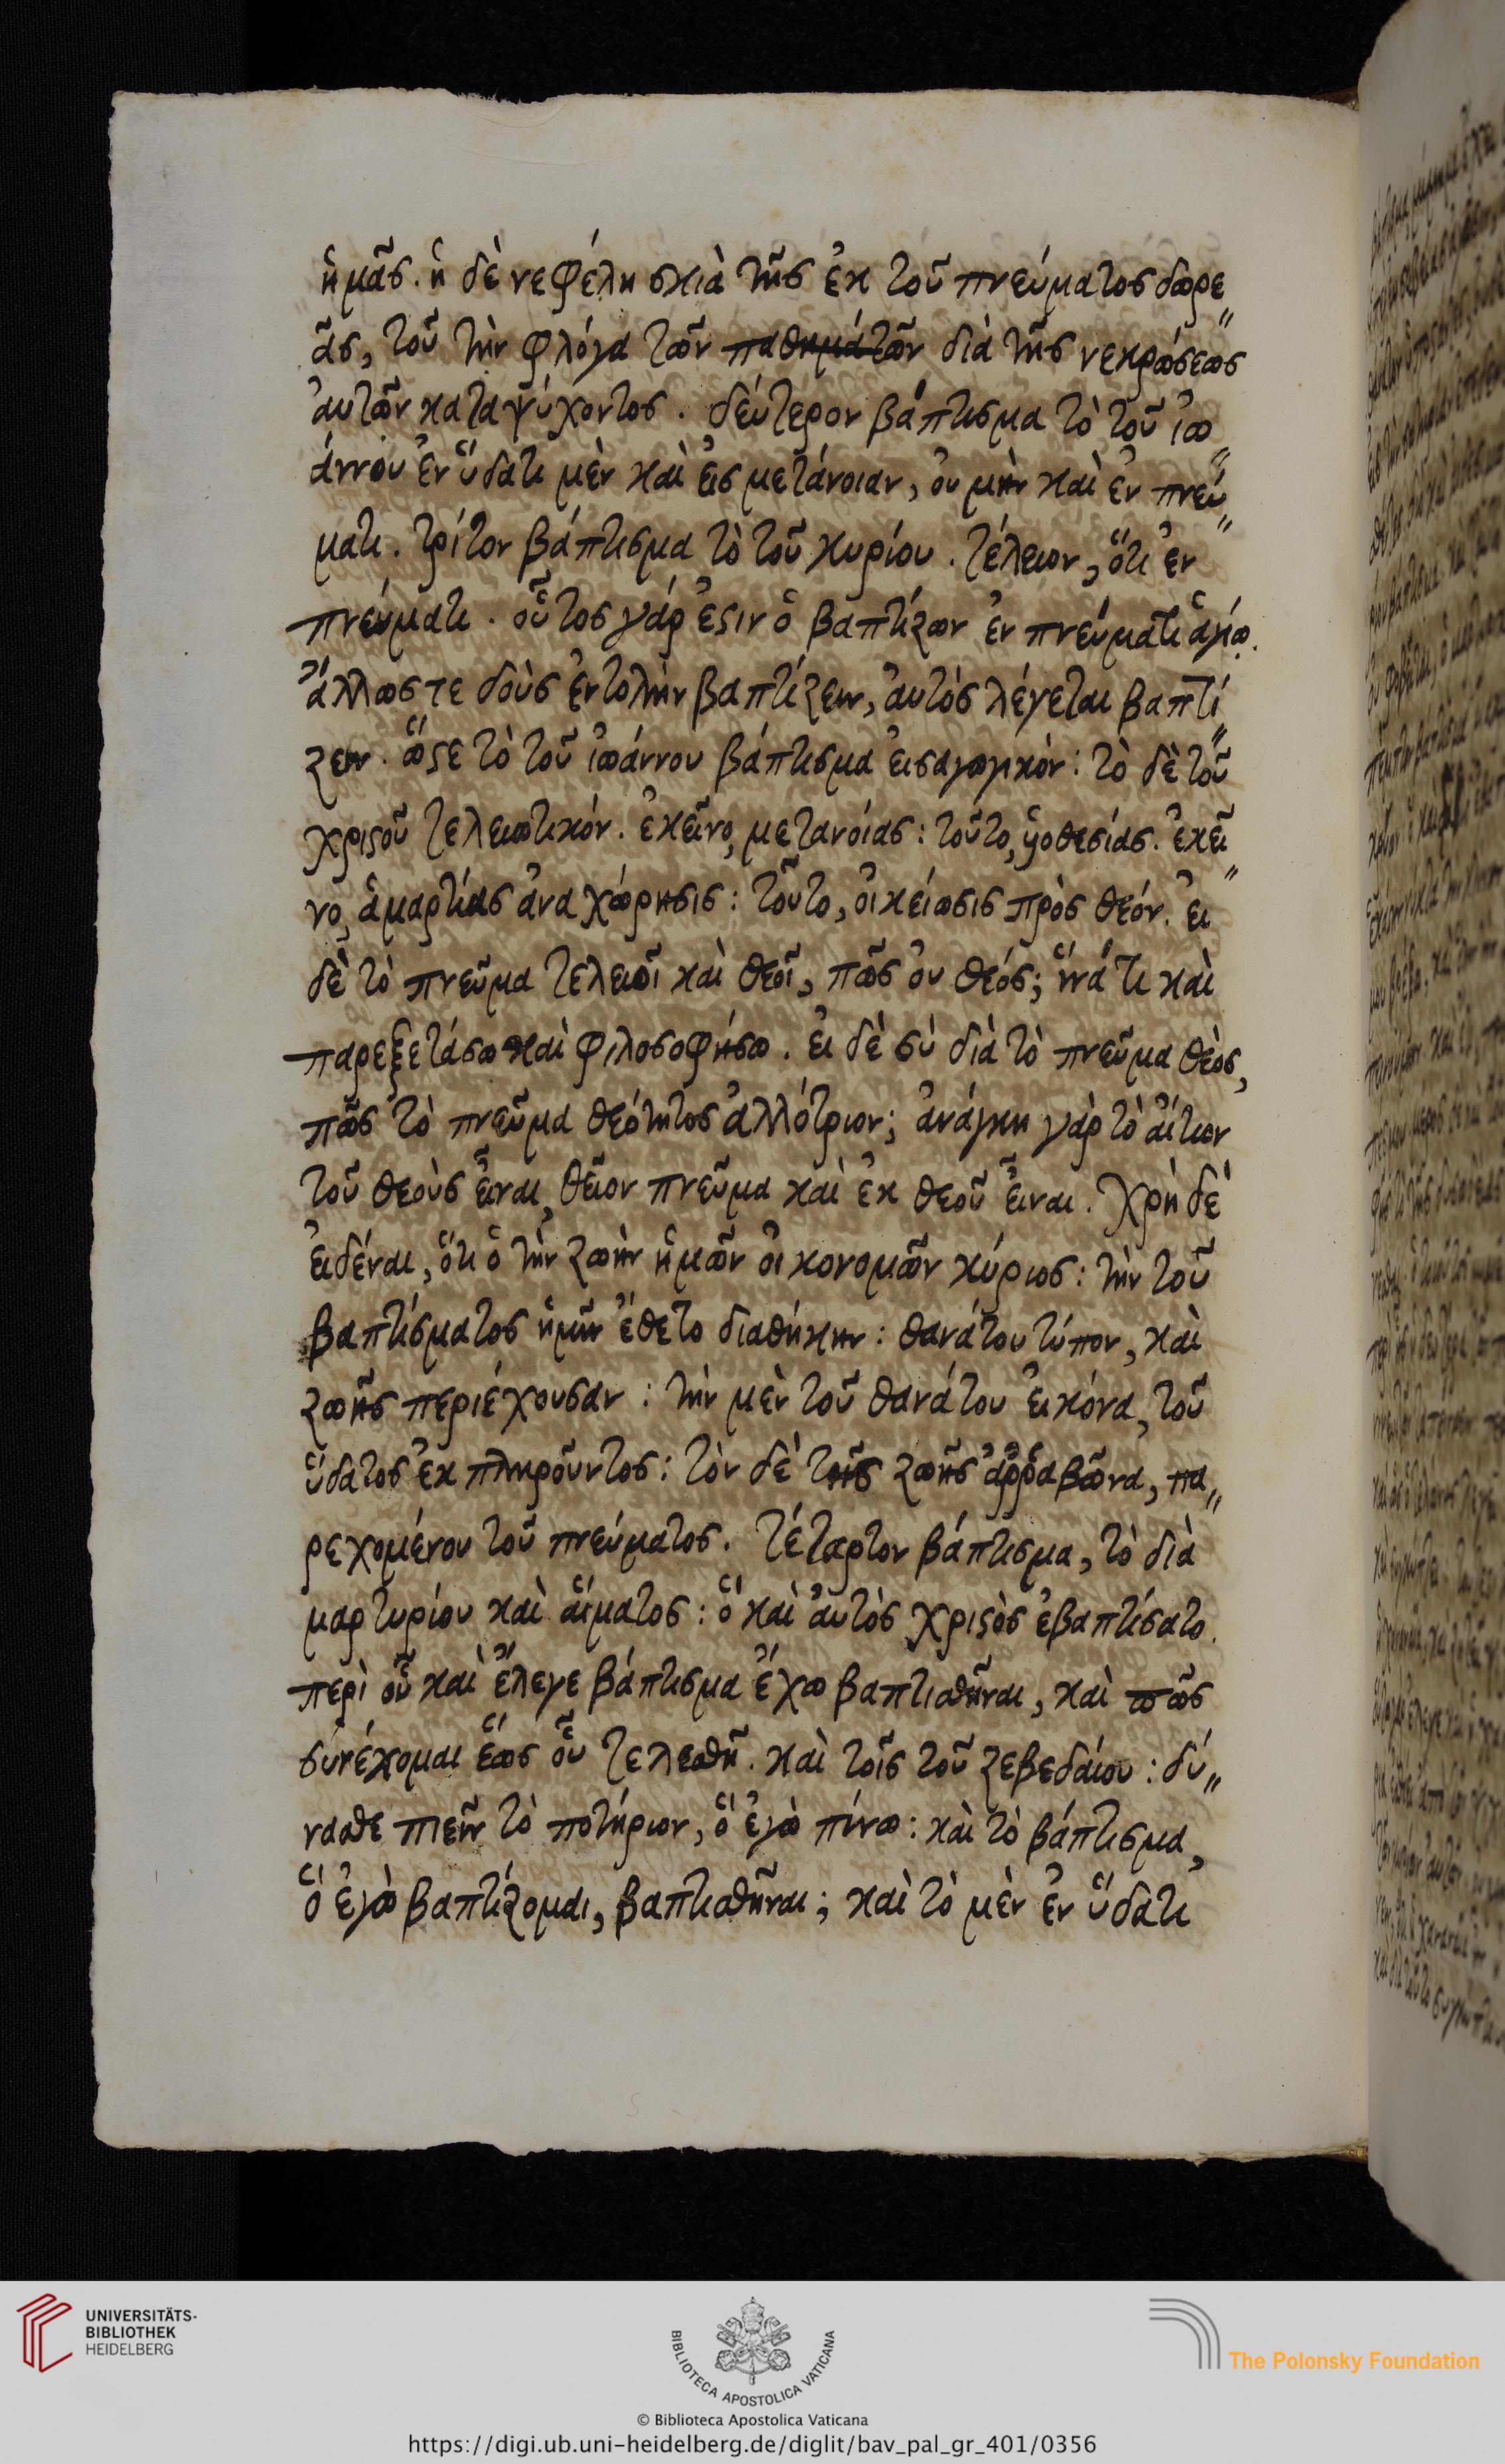 ἡμᾶς. ἡ δὲ νεφέλη σκιὰ τῆς ἐκ τοῦ πνεύματος δωρε
ᾶς, τοῦ τὴν φλόγα τῶν παθημάτων διὰ τῆς νεκρώσεως
ἀυτῶν καταψύχοντος. δεύτερον βάπτισμα τὸ τοῦ ἰω
άννου ἐν ὕδατι μὲν καὶ ἐις μετάνοιαν, ὀυ μὴν καὶ ἐν πνεύ
ματι. τρίτον βάπτισμα τὸ τοῦ κυρίου. τέλειον, ὅτι ἐν
πνεύματι. οὗτος γάρ ἐστιν ὁ βαπτίζων ἐν πνεύματι ἁγίῳ.
ἄλλως τε δοὺς ἐντολὴν βαπτίζειν, ἀυτὸς λέγεται βαπτί
ζειν. ὥστε τὸ τοῦ ἰωάννου βάπτισμα ἐισαγωγικὸν: τὸ δὲ τοῦ
χριστοῦ τελειωτικόν. ἐκεῖνο, μετανοίας: τοῦτο, ὑοθεσίας. ἐκεῖ
νο, ἁμαρτίας ἀναχώρησις: τοῦτο, ὀικείωσις πρὸς θεόν. ἐι
δὲ τὸ πνεῦμα τελειοῖ καὶ θεοῖ, πῶς ὀυ θεός; ἵνά τι καὶ
παρεξετάσω καὶ φιλοσοφήσω. ἐι δὲ σὺ διὰ τὸ πνεῦμα θεὸς,
πῶς τὸ πνεῦμα θεότητος ἀλλότριον; ἀνάγκη γὰρ τὸ ἄιτιον
τοῦ θεοὺς εἶναι, θεῖον πνεῦμα καὶ ἐκ θεοῦ εἶναι. Χρὴ δὲ
ἐιδέναι, ὅτι ὁ τὴν ζωὴν ἡμῶν ὀικονομῶν κύριος: τὴν τοῦ
βαπτίσματος ἡμῖν ἔθετο διαθήκην: θανάτου τύπον, καὶ
ζωῆς περιέχουσαν: τὴν μὲν τοῦ θανάτου ἐικόνα, τοῦ
ὕδατος ἐκπληροῦντος: τὸν δὲ τῆς ζωῆς ἀῤῥαβῶνα, πα
ρεχομένου τοῦ πνεύματος. Τέταρτον βάπτισμα, τὸ διὰ
μαρτυρίου καὶ ἅιματος: ὃ καὶ ἀυτὸς χριστὸς ἐβαπτίσατο.
περὶ οὗ καὶ ἔλεγε βάπτισμα ἔχω βαπτισθῆναι, καὶ πῶς
συνέχομαι ἕως οὗ τελεσθῆ. καὶ τοῖς τοῦ ζεβεδάιου: δύ
νασθε πιεῖν τὸ ποτήριον, ὃ ἐγὼ πίνω: καὶ τὸ βάπτισμα,
ὃ ἐγὼ βαπτίζομαι, βαπτισθῆναι; καὶ τὸ μὲν ἐν ὕδατι
UNIVERSITÄTS-
BIBLIOTHEK
HEIDELBERG
BIBLIOTECA APOSTOLICA VATICANA
The Polonsky Foundation
© Biblioteca Apostolica Vaticana
https://digi.ub.uni-heidelberg.de/diglit/bav_pal_gr_401/0356